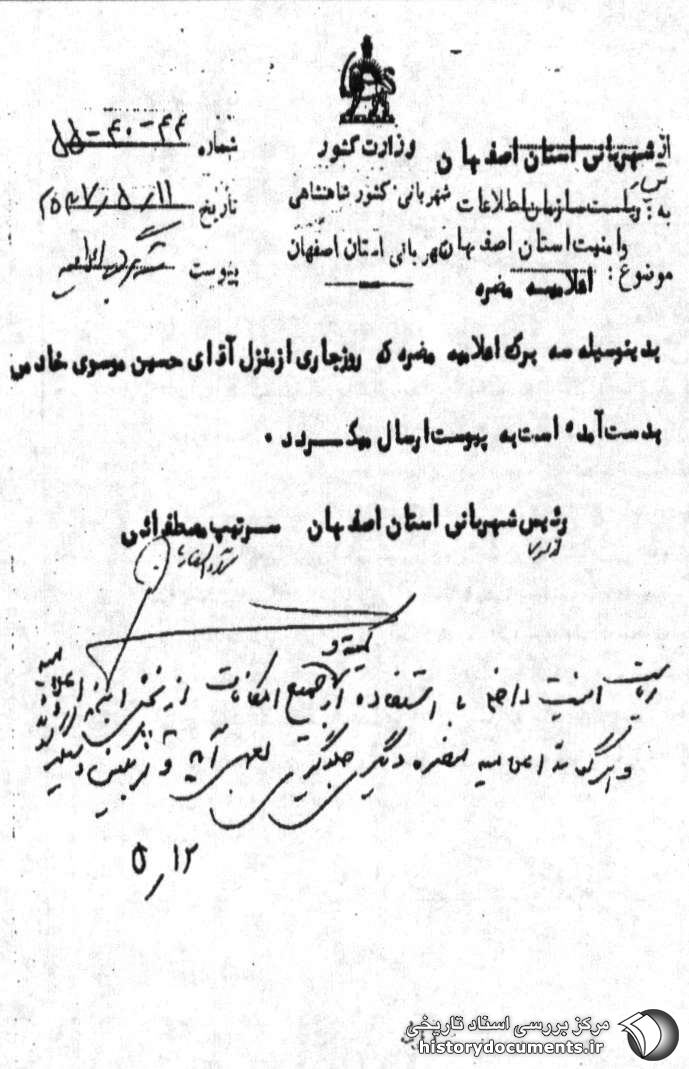 از شهربانی استان اصفهان
وزارت کشور
شماره ۴۴-۴۰-۵۵
به: ریاست سازمان اطلاعات
شهربانی کشور شاهنشاهی
تاریخ ۲۵۳۷/۵/۱۱
و امنیت استان اصفهان
شهربانی استان اصفهان
پیوست
موضوع: اعلامیه مضره
بدینوسیله سه برگ اعلامیه مضره که روز جاری از منزل آقای حسین موسوی خادمی
بدست آمده است به پیوست ارسال میگردد .
رئیس شهربانی استان اصفهان سرتیپ مصطفوائی
ریاست امنیت داخلی با استفاده از جمیع امکانات از پخش این اعلامیه
و هر گونه اعلامیه مضره دیگر جلوگیری بعمل آید و
۵/۱۲
مرکز بررسی اسناد تاریخی
historydocuments.ir